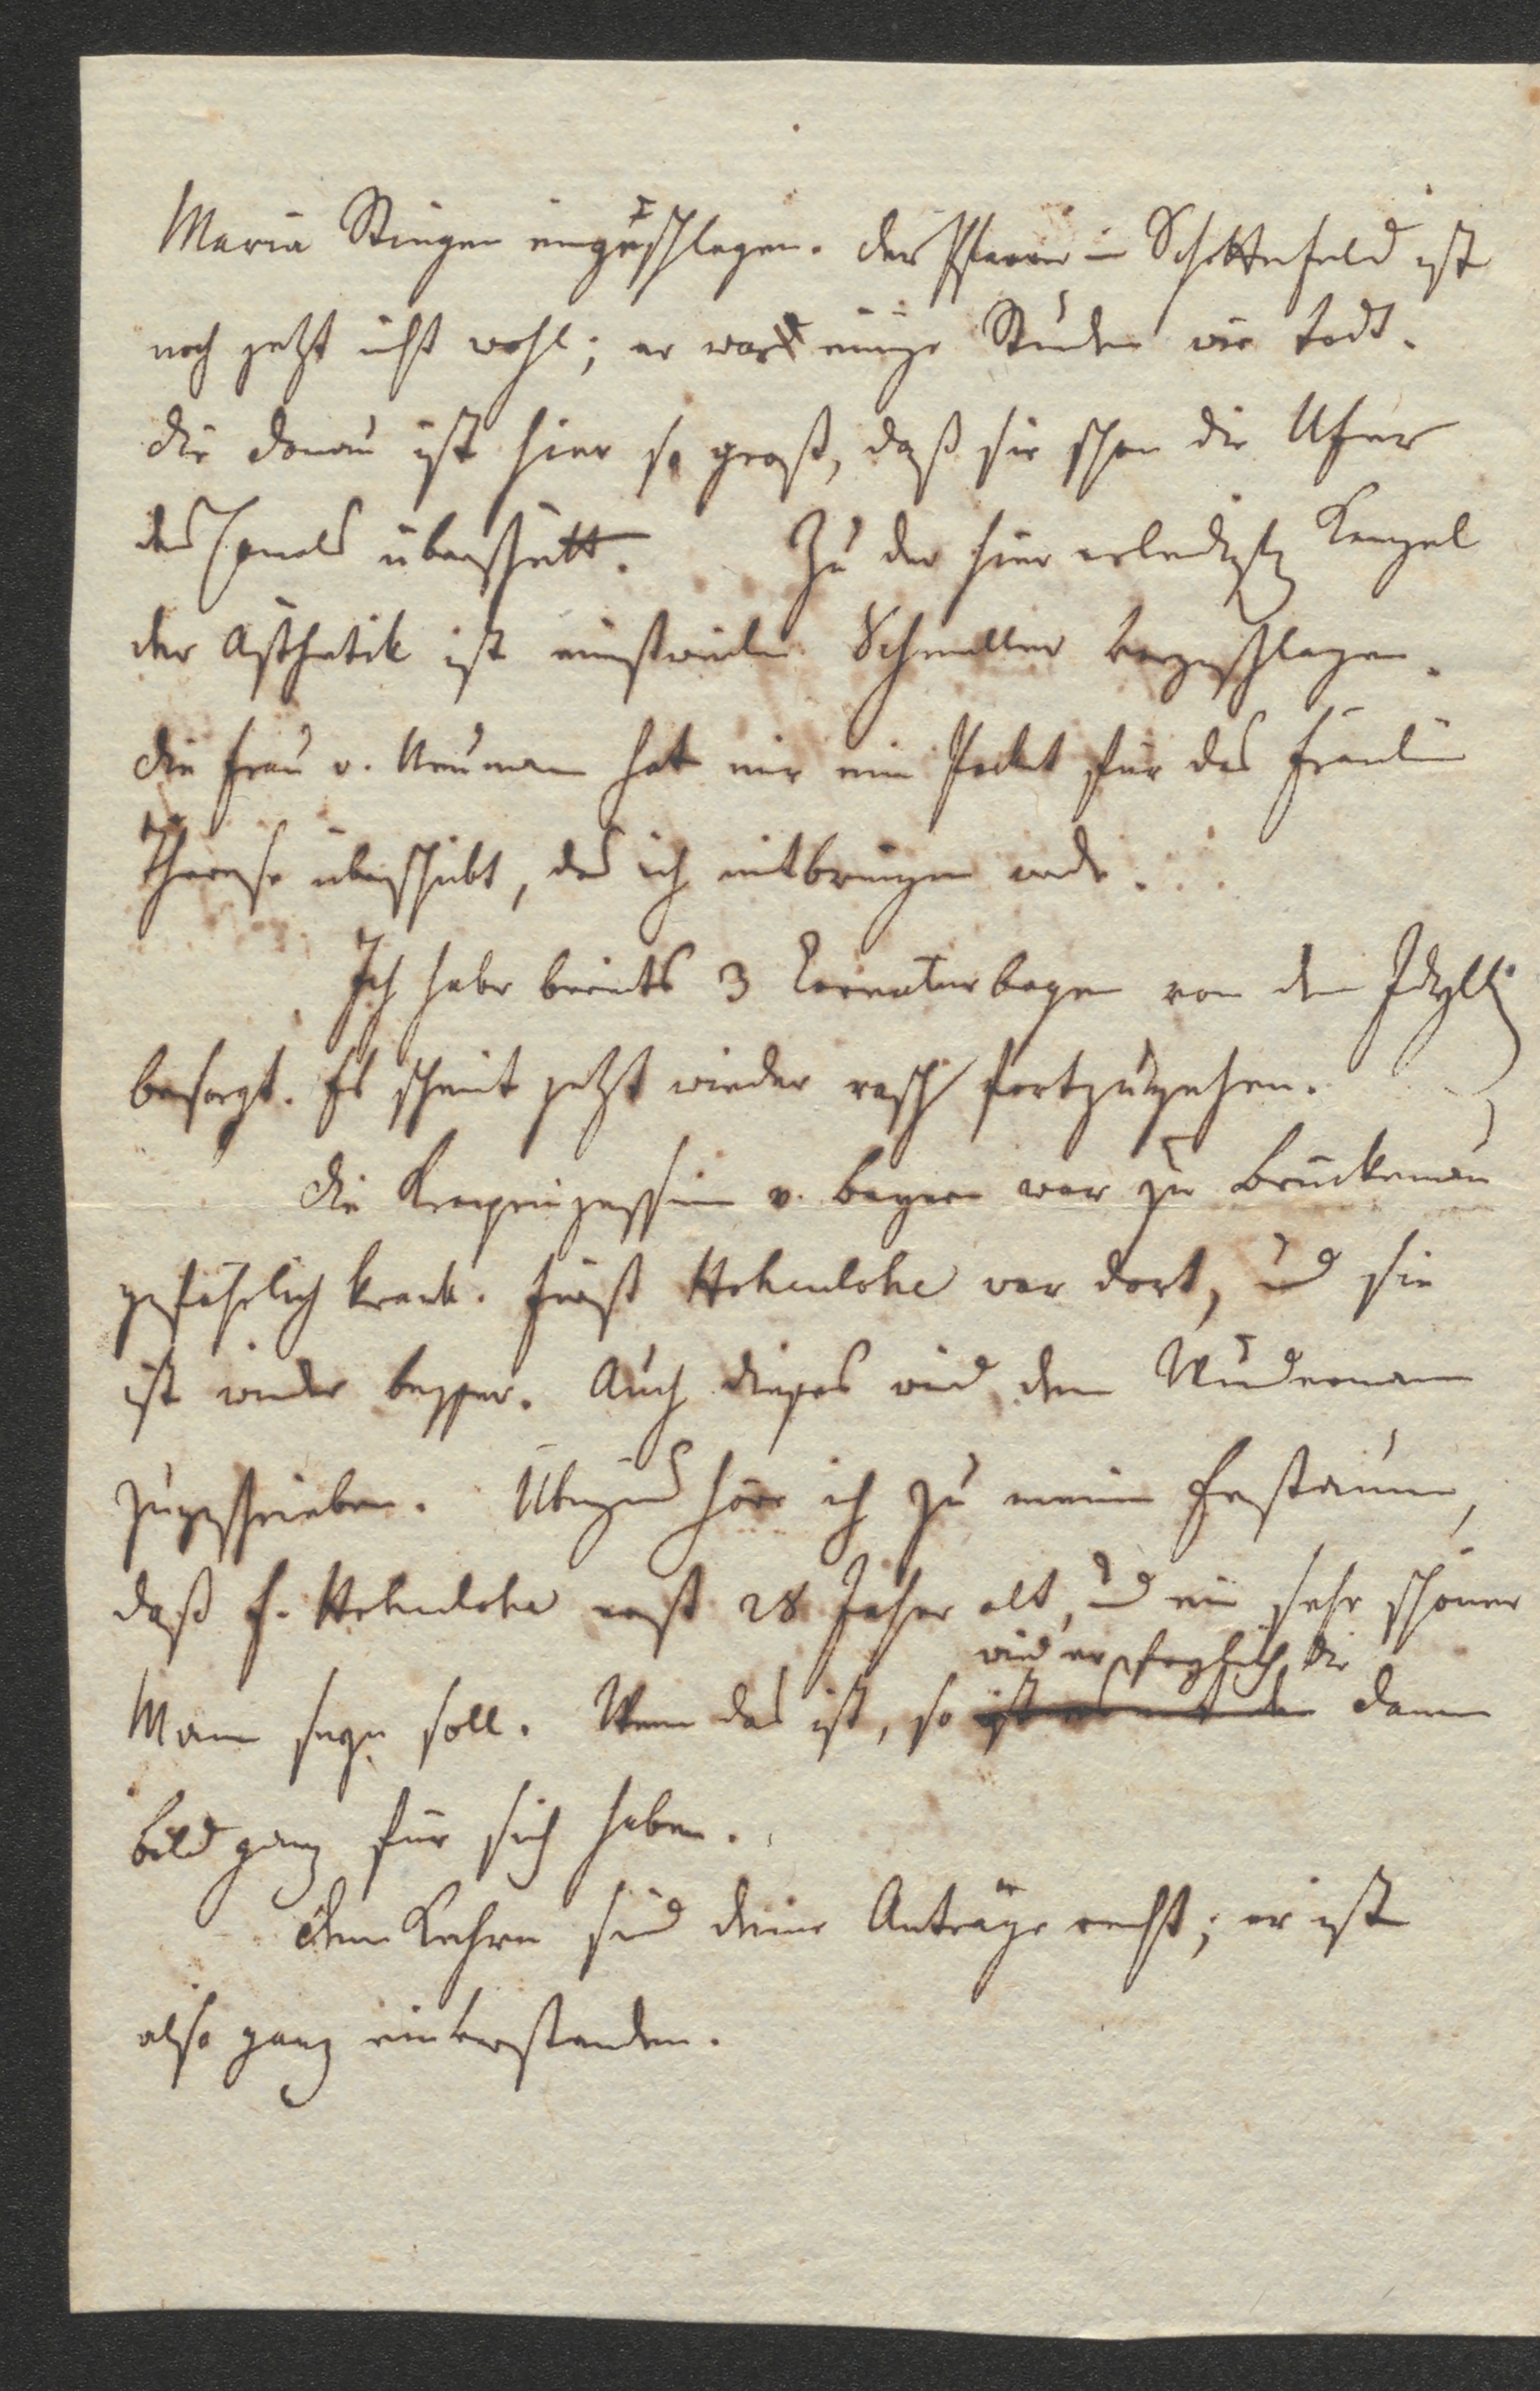 Maria Stiegen eingeschlagen. Der Pfarrer in Schottenfeld ist
noch jetzt nicht wohl; er war einige Stunden wie todt.
Die Donau ist hier so groß, daß sie schon die Ufer
des Canals überschritt. Zu der hier erledigten Kanzel
der Ästhetik ist einstweilen Schneller vorgeschlagen.
Die Frau v. Neumann hat mir ein Packet für das Fräulein
Therese überschickt, das ich mitbringen werde.
Ich habe bereits 3 Correcturbogen von den Idyllen
besorgt. Es scheint jetzt wieder rasch fortzugehen.
Die Kronprinzessinn v. Bayern war zu Brückenau
gefährlich krank. Fürst Hohenlohe war dort, und sie
ist wieder besser. Auch dieses wird dem Wundermann
zugeschrieben. Übrigens höre ich zu meinem Erstaunen,
daß F. Hohenlohe erst 28 Jahre alt, und ein sehr schöner
wird er folglich die
Mann seyn soll. Wenn das ist, so ist es Damen
bald ganz für sich haben.
Dem sind deine Anträge recht; er ist
also ganz einverstanden.